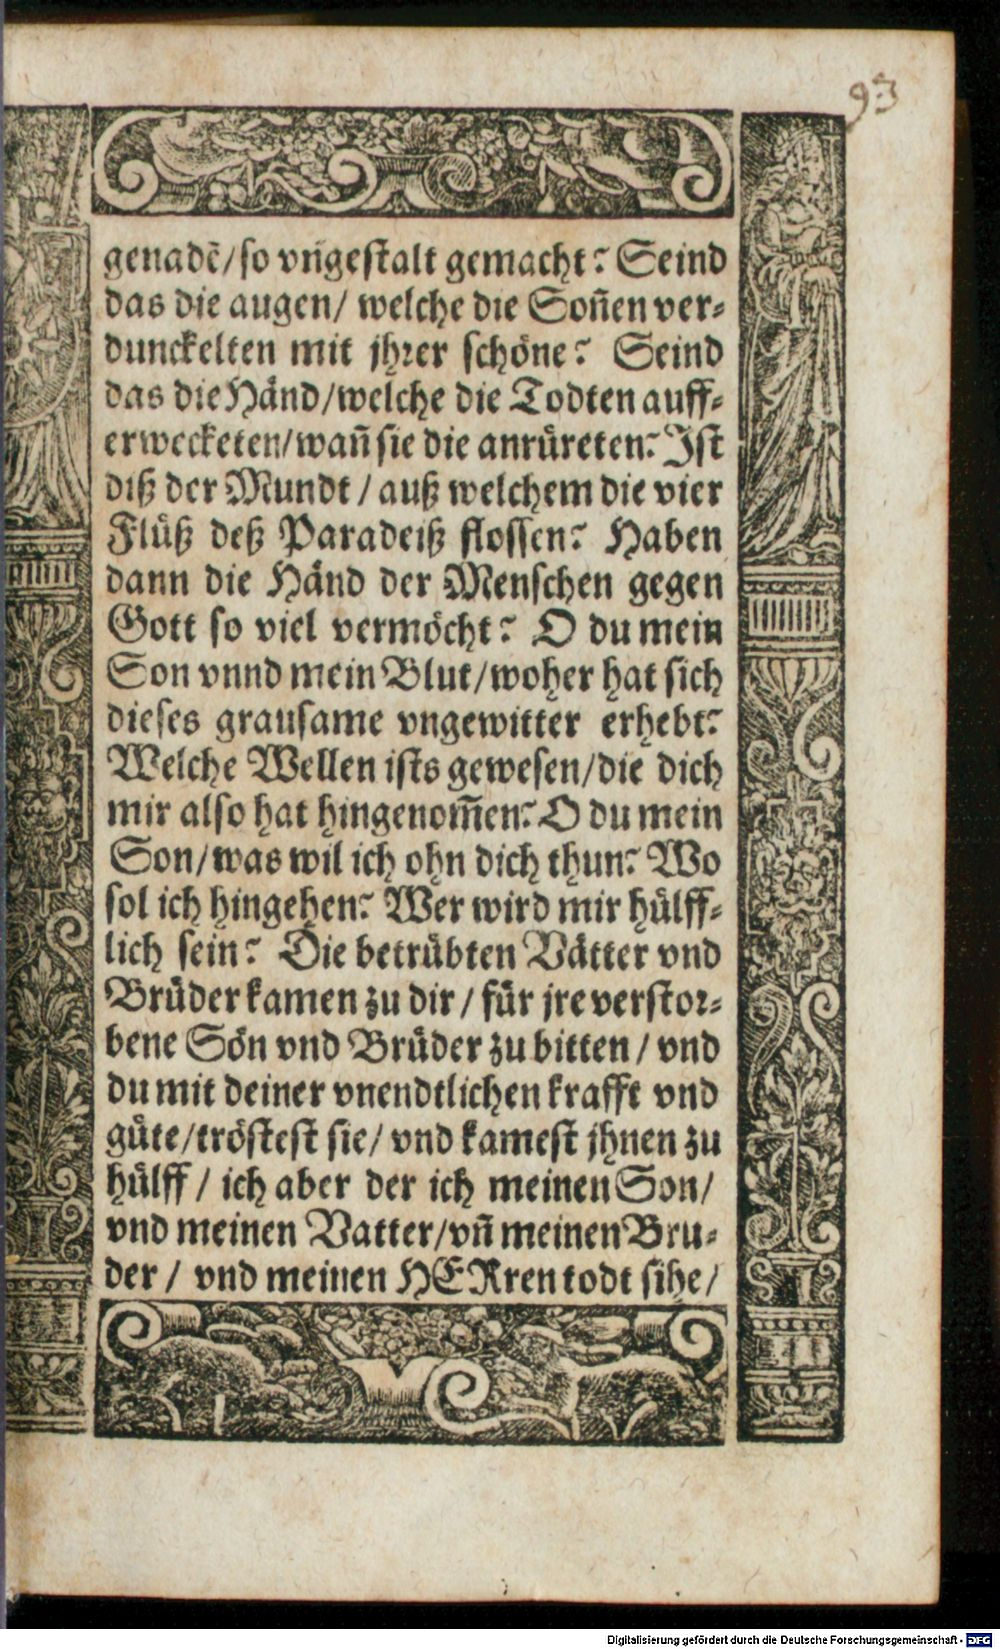 93
genadẽ/so vngestalt gemacht? Seind
das die augen/ welche die Soñen ver⸗
dunckelten mit jhrer schöne? Seind
das die Händ/welche die Todten auff⸗
erwecketen/wañ sie die anrüreten? Ist
diß der Mundt / auß welchem die vier
Flüß deß Paradeiß flossen? Haben
dann die Händ der Menschen gegen
Gott so viel vermöcht? O du mein
Son vnnd mein Blut/woher hat sich
dieses grausame vngewitter erhebt?
Welche Wellen ists gewesen/die dich
mir also hat hingenom̃en? O du mein
Son/was wil ich ohn dich thun? Wo
sol ich hingehen? Wer wird mir hülff⸗
lich sein? Die betrübten Vätter vnd
Brüder kamen zu dir / für jre verstor⸗
bene Sön vnd Brüder zu bitten / vnd
du mit deiner vnendtlichen krafft vnd
güte/tröstest sie/ vnd kamest jhnen zu
hülff / ich aber der ich meinen Son/
vnd meinen Vatter/vñ meinen Bru⸗
der / vnd meinen HERren todt sihe/
Digitalisierung gefördert durch die Deutsche Forschungsgemeinschaft - DFG